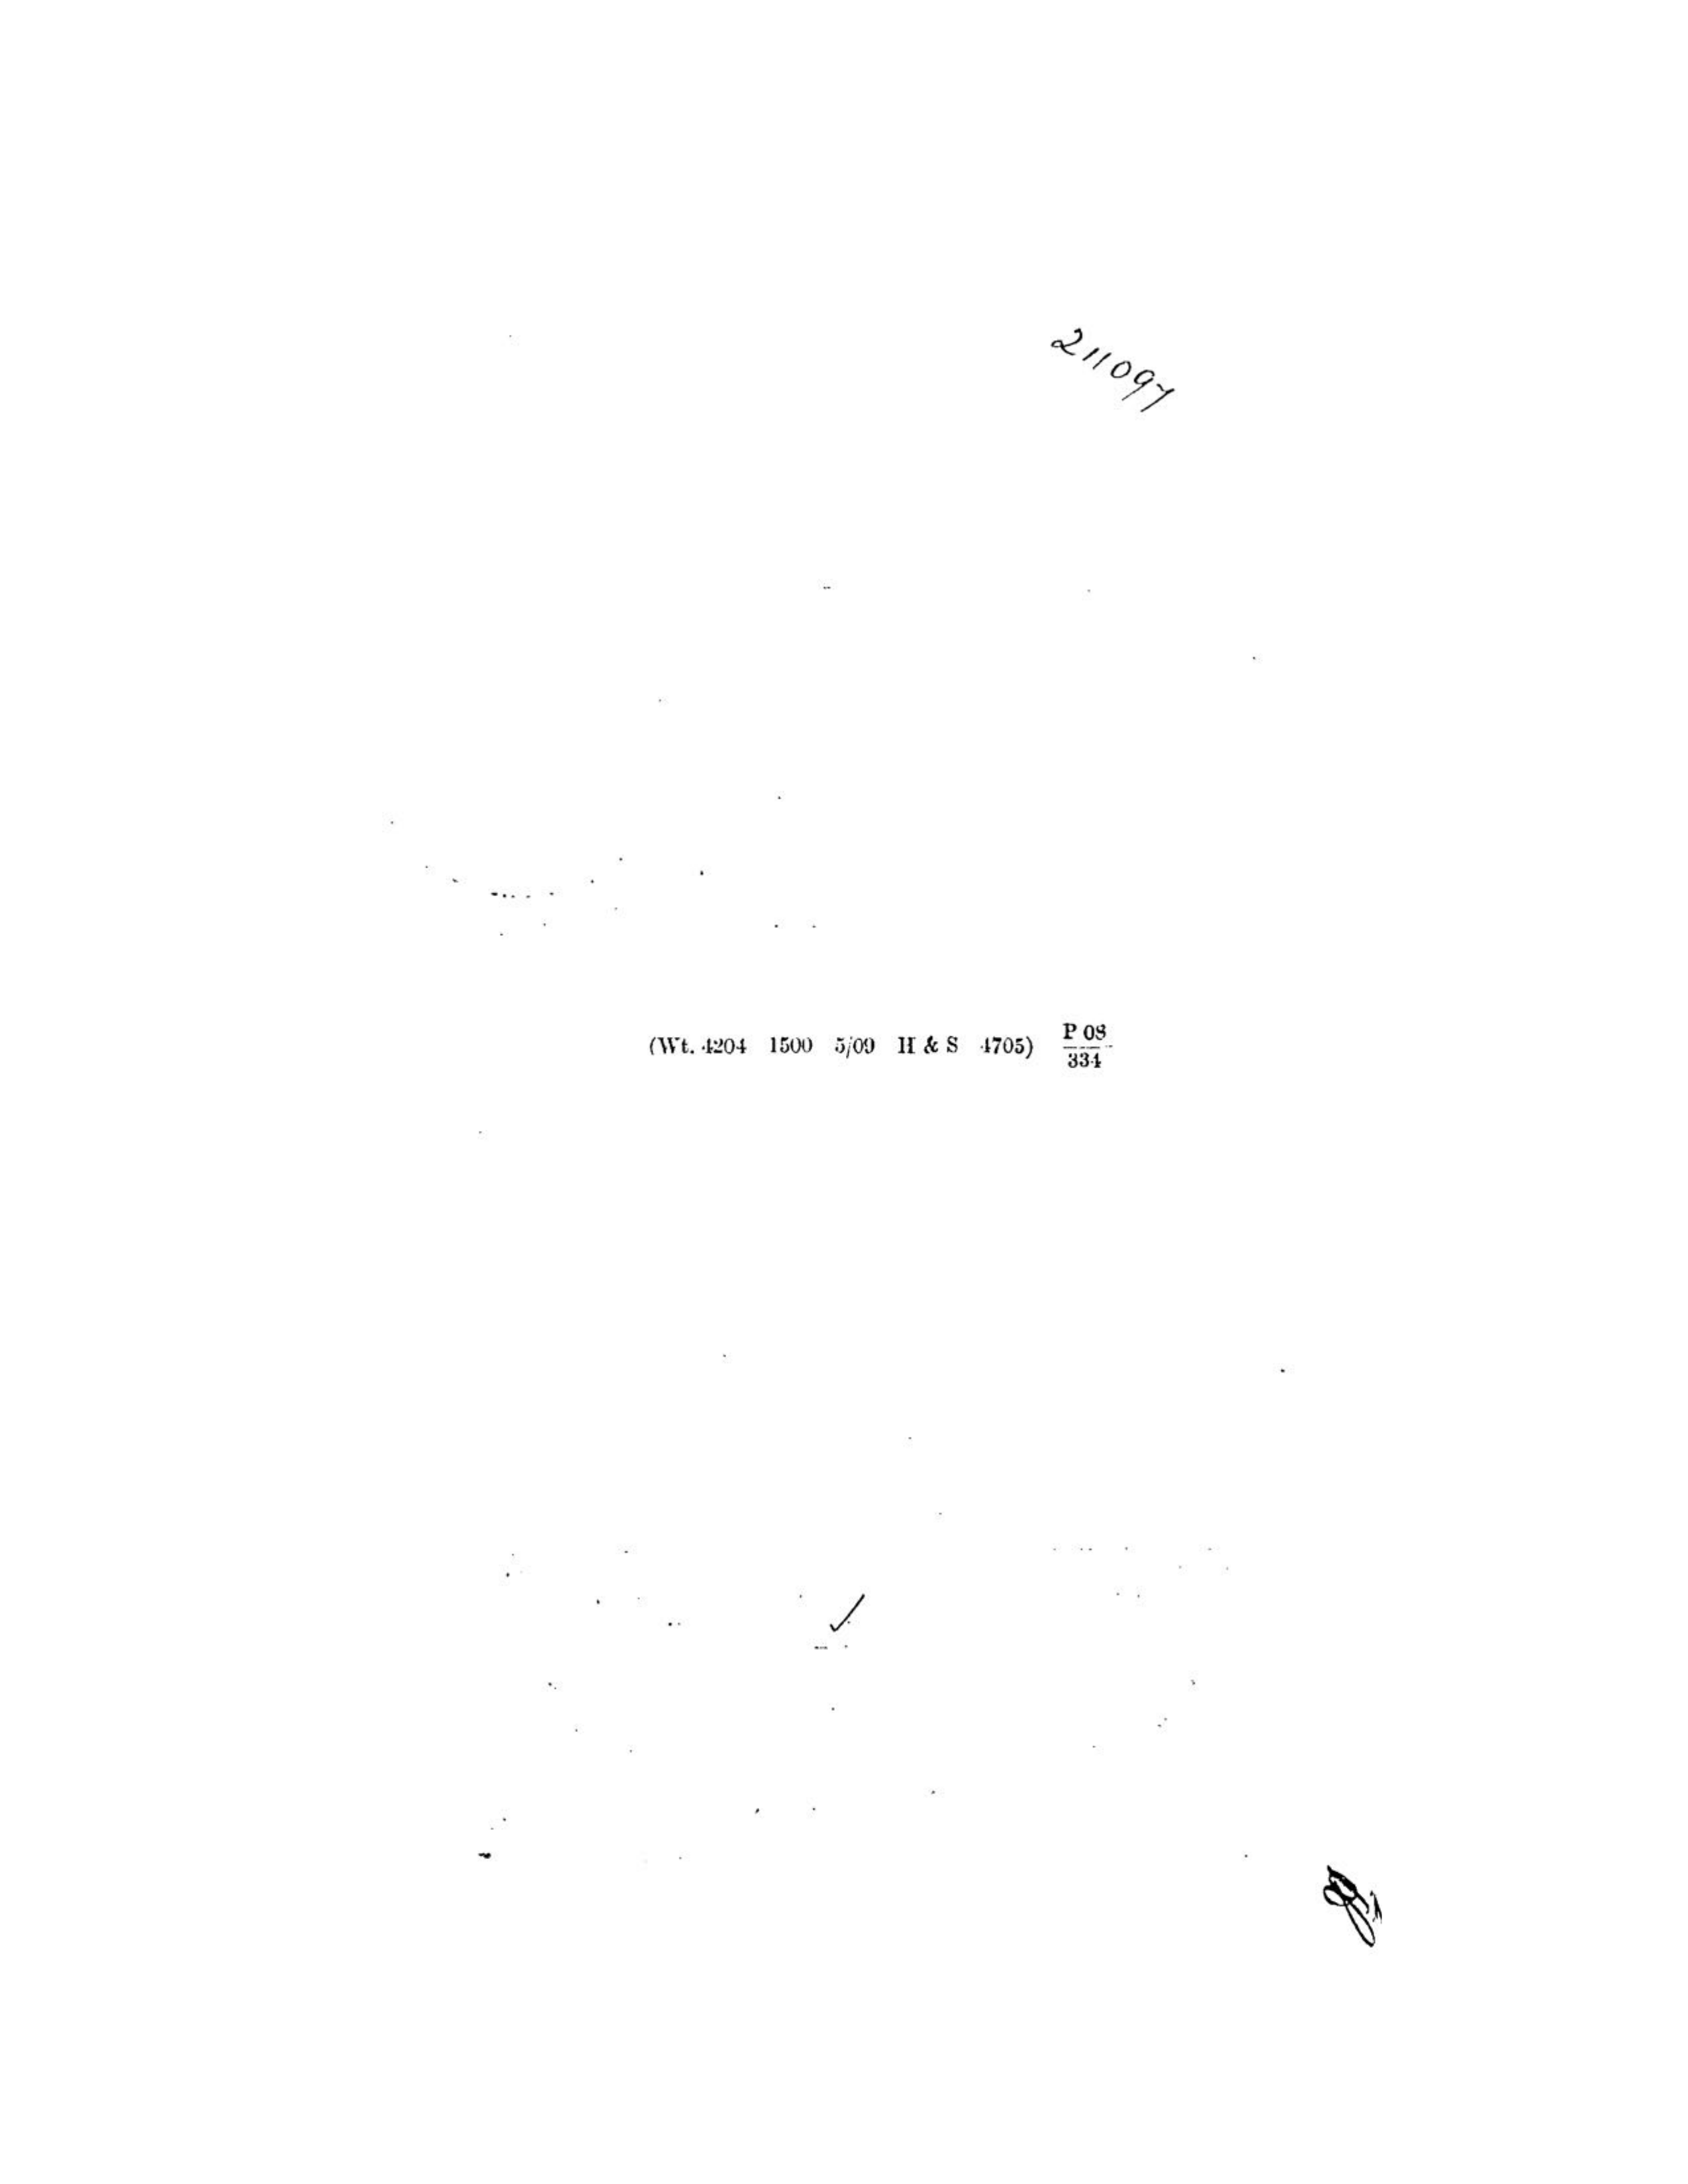 211097
(Wt. 4204 1500 5/09 H & S 4705) P 08
334